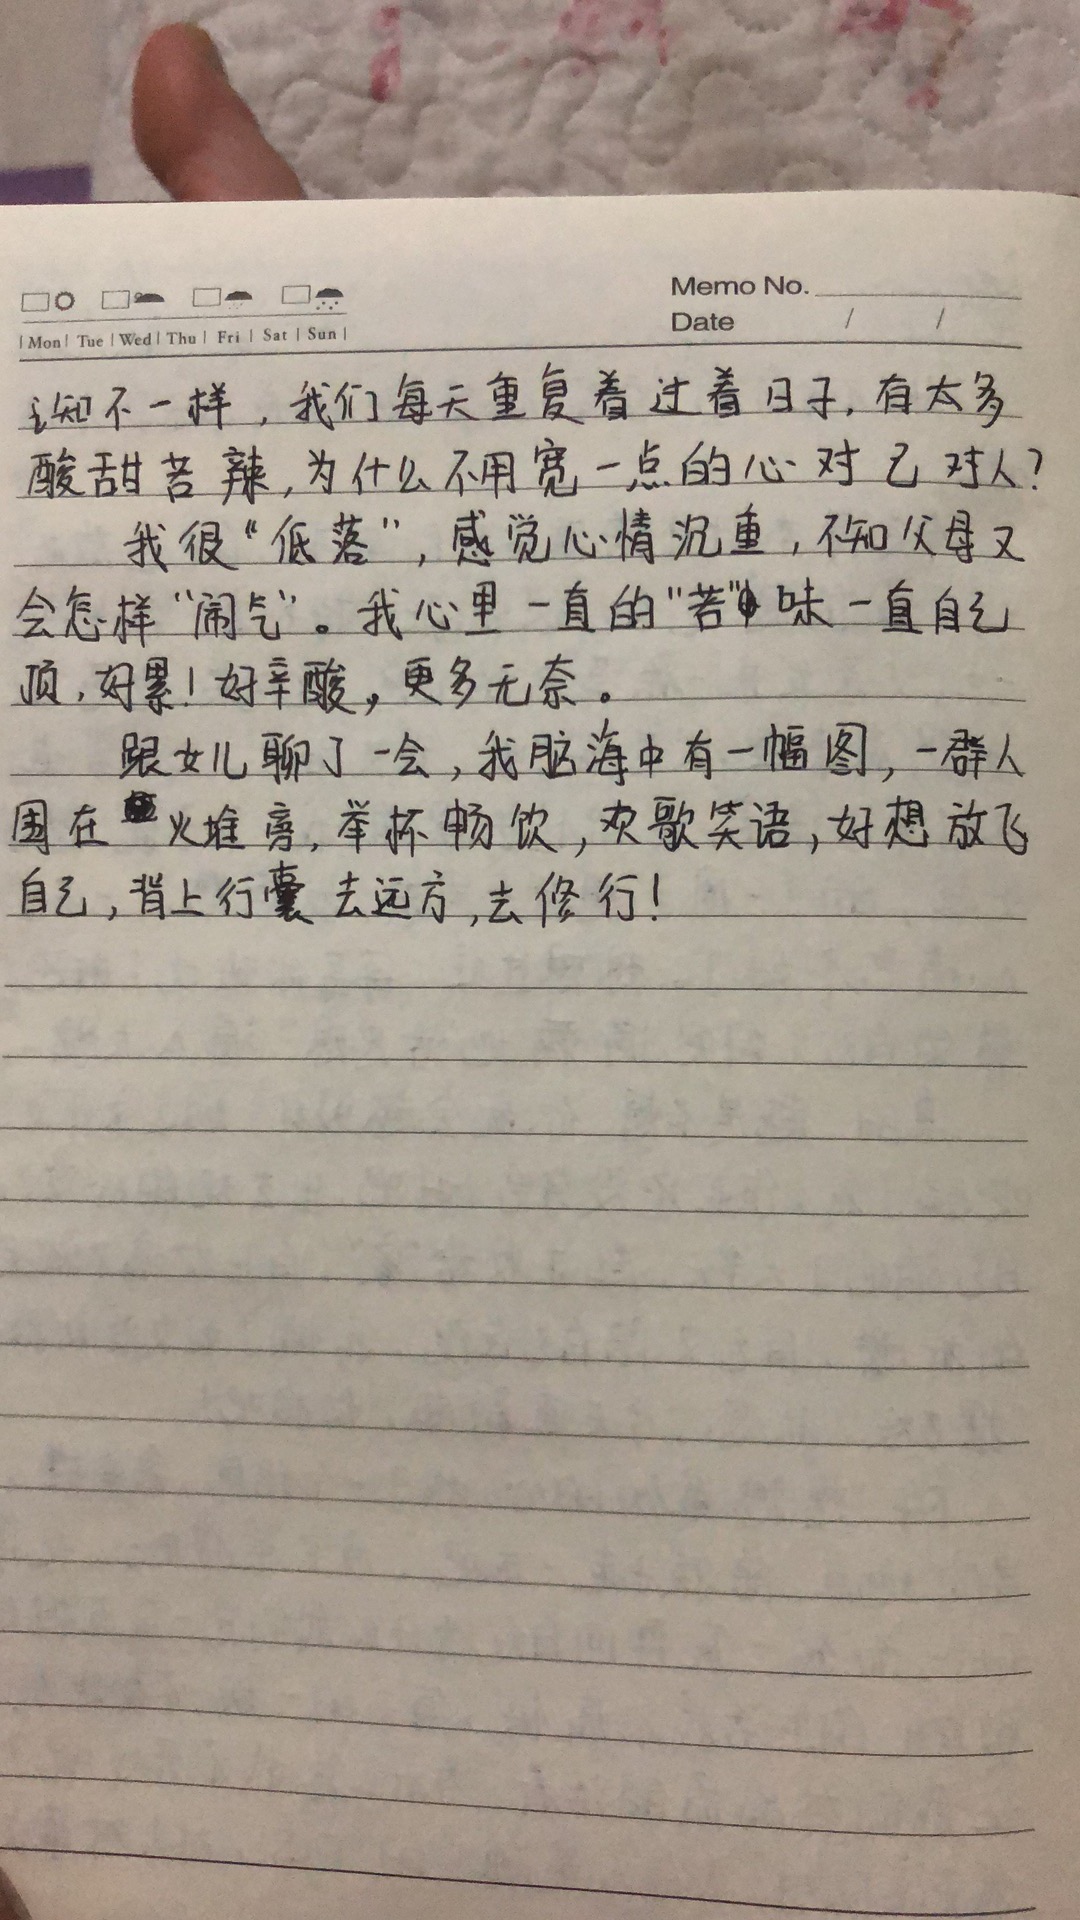 Memo No.
Mon Tue Wed Thu Fri Sat Sun
Date / /
认知不一样，我们每天重复着过着日子，有太多
酸甜苦辣，为什么不用宽一点的心对己对人？
我很“低落”，感觉心情沉重，不知父母又
会怎样“闹气”。我心里一直的“苦”味一直自己
顶，好累！好辛酸，更多无奈。
跟女儿聊了一会，我脑海中有一幅图，一群人
围在火堆旁，举杯畅饮，欢歌笑语，好想放飞
自己，背上行囊去远方，去修行！